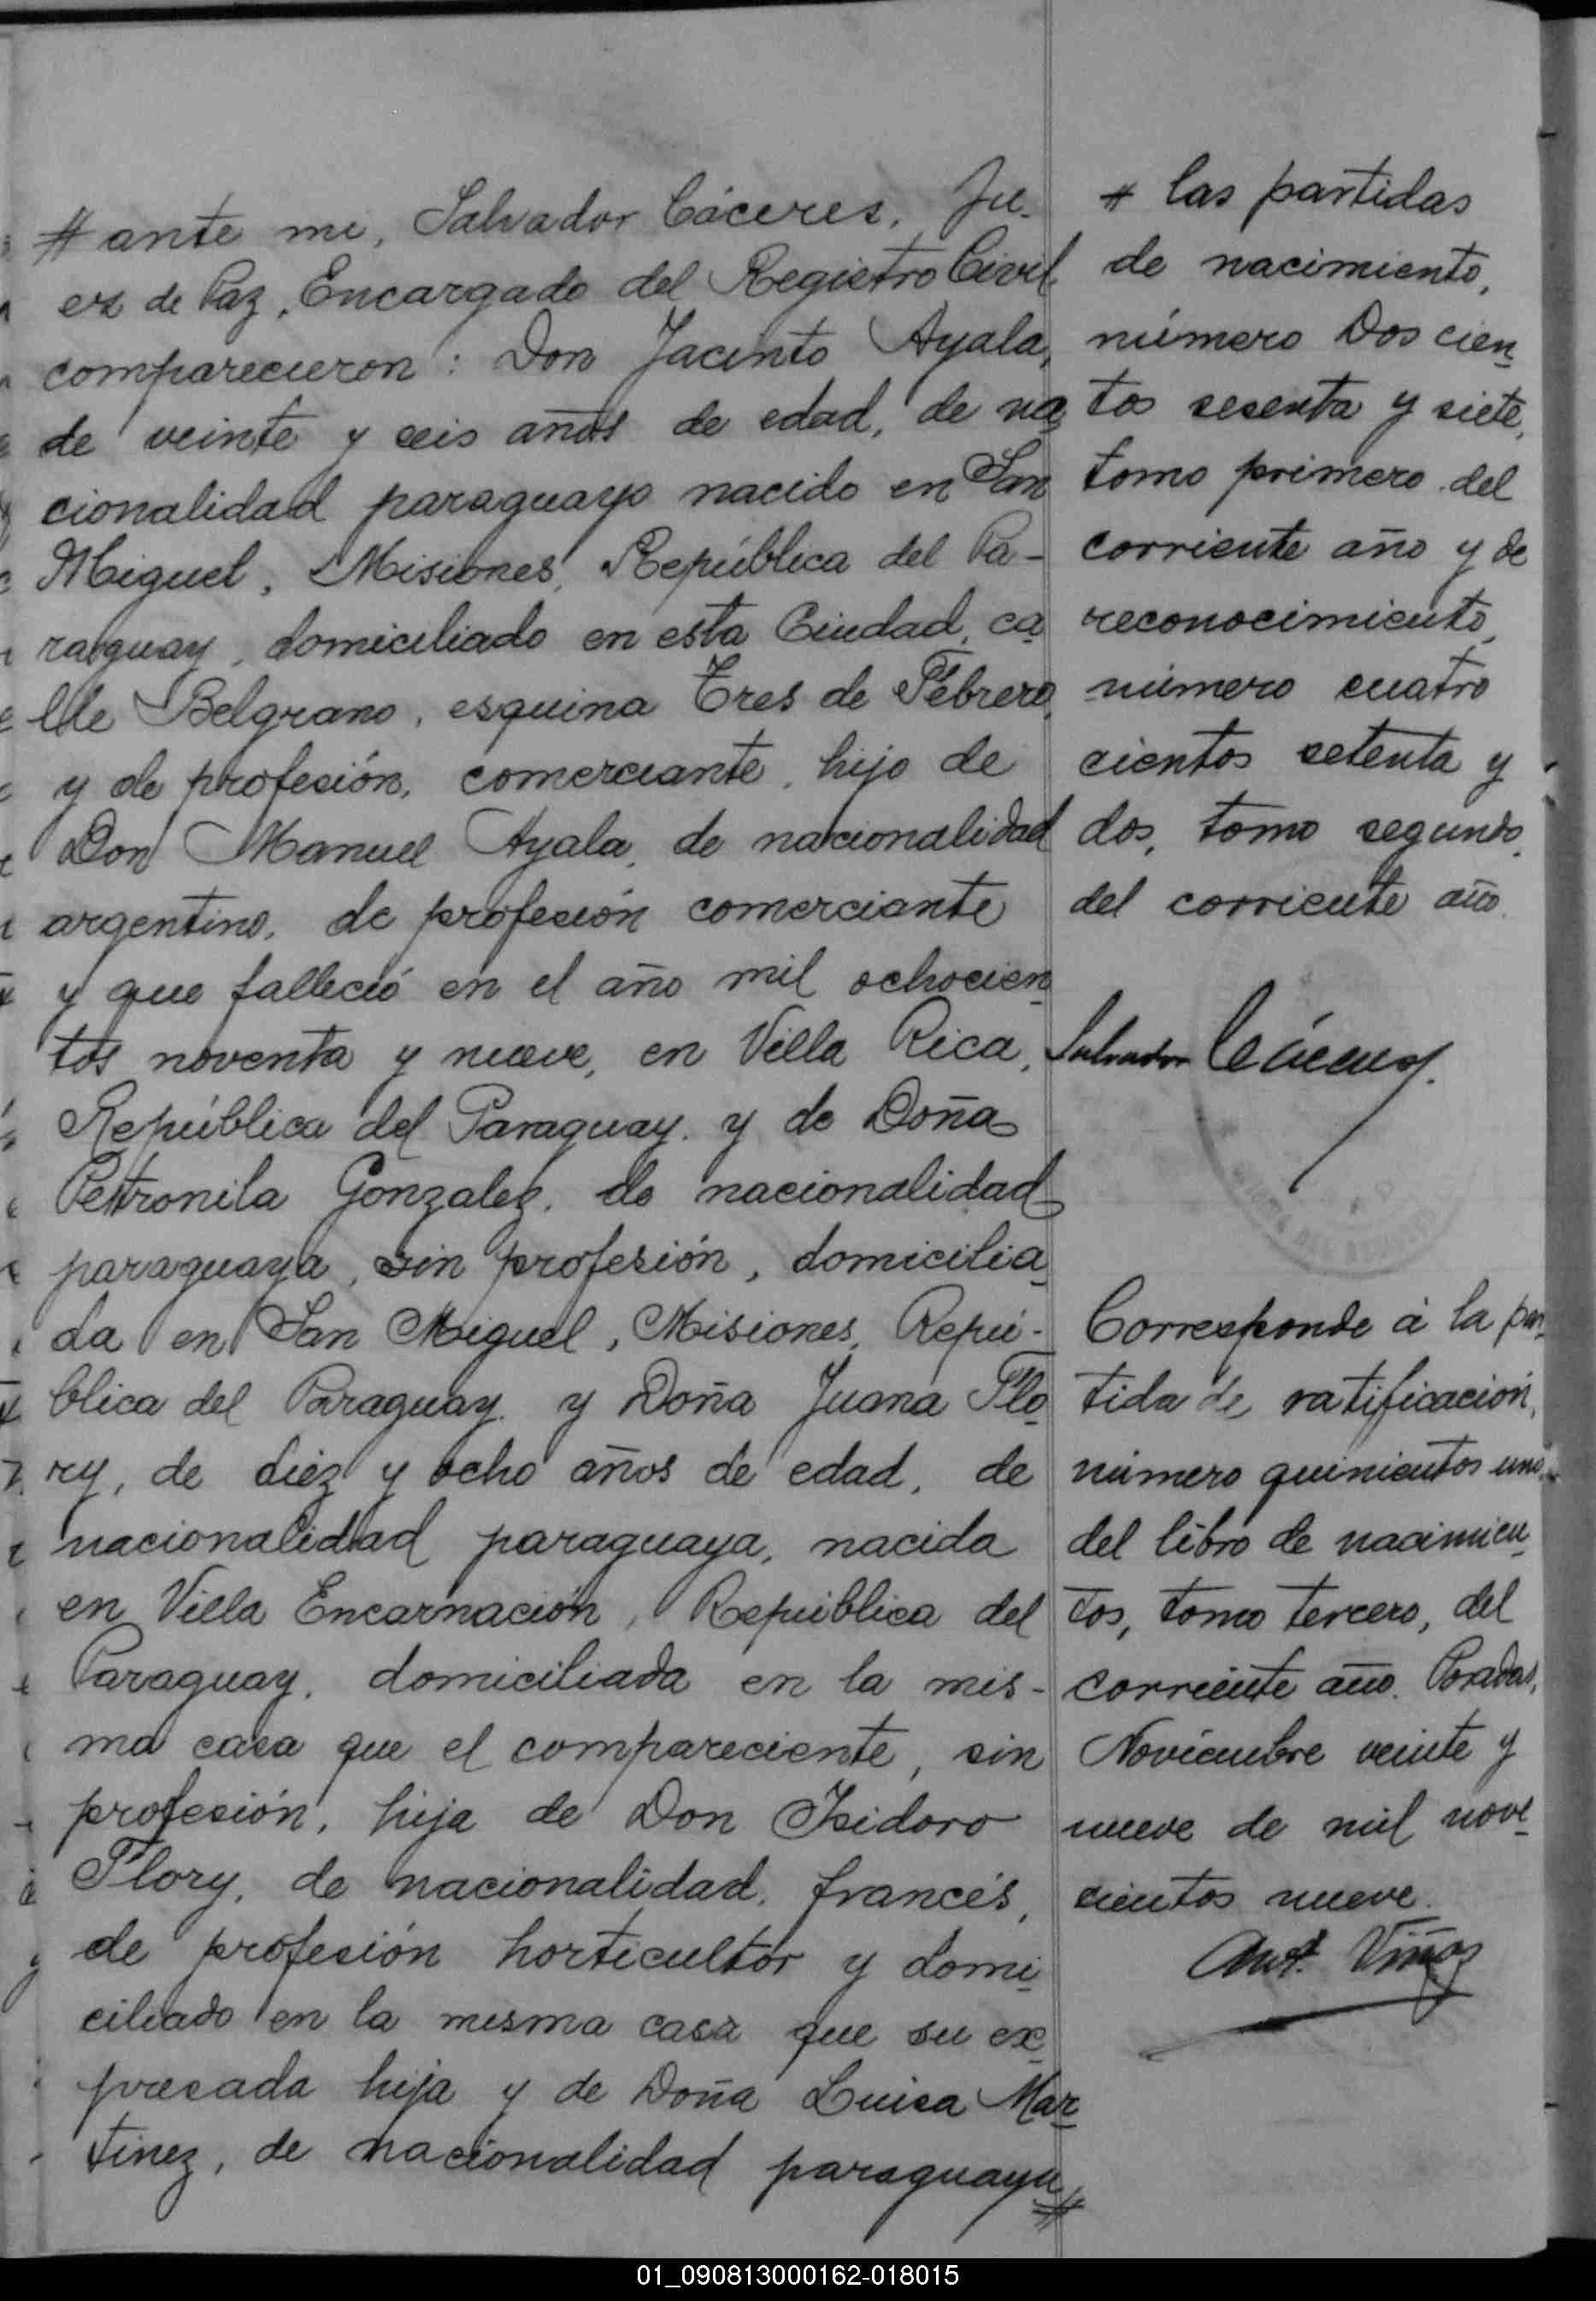 # ante mi, Salvador Cáceres, Ju-
ez de Paz, Encargado del Registro Civil,
comparecieron: Don Jacinto Ayala,
de veinte y seis años de edad, de na
cionalidad paraguayo nacido en San
Miguel, Misiones, República del Pa-
raguay, domiciliado en esta Ciudad, ca
lle Belgrano, esquina Tres de Febrero,
y de profesión, comerciante, hijo de
Don Manuel Ayala, de nacionalidad
argentino, de profesión comerciante
y que falleció en el año mil ochocien
tos noventa y nueve, en Villa Rica,
República del Paraguay, y de Doña
Petronila Gonzalez, de nacionalidad
paraguaya, sin profesión, domicilia
da en San Miguel, Misiones, Repú-
blica del Paraguay, y Doña Juana Flo
ry, de diez y ocho años de edad, de
nacionalidad paraguaya, nacida
en Villa Encarnación, República del
Paraguay, domiciliada en la mis-
ma casa que el compareciente, sin
profesión, hija de Don Isidoro
Flory, de nacionalidad, francés,
de profesión horticultor y domi
ciliado en la misma casa que su ex
presada hija y de Doña Luisa Mar
tinez, de nacionalidad paraguaya #
# las partidas
de nacimiento,
número Dos cien
tos sesenta y siete,
tomo primero del
corriente año y de
reconocimiento,
número cuatro
cientos setenta y
dos, tomo segundo,
del corriente año.
Salvador Cáceres.
Corresponde á la par
tida de ratificación,
número quinientos uno,
del libro de nacimien
tos, tomo tercero, del
corriente año. Posadas,
Noviembre veinte y
nueve de mil nove
cientos nueve.
Ant. Viñas
01_090813000162-018015